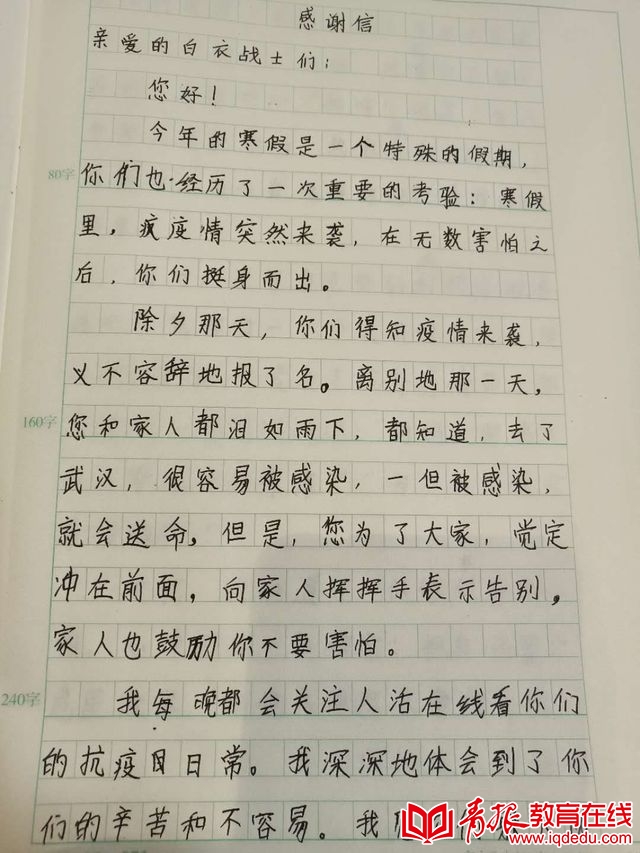 感谢信
亲爱的白衣战士们：
您好！
今年的寒假是一个特殊的假期，
80字
你们也经历了一次重要的考验：寒假
里，疯疫情突然来袭，在无数害怕之
后，你们挺身而出。
除夕那天，你们得知疫情来袭，
义不容辞地报了名。离别地那一天，
160字
您和家人都泪如雨下，都知道，去了
武汉，很容易被感染，一但被感染，
就会送命，但是，您为了大家，觉定
冲在前面，向家人挥挥手表示告别。
家人也鼓励你不要害怕。
240字
我每晚都会关注人活在线看你们
的抗疫日日常。我深深地体会到了你
们的辛苦和不容易。我
青报教育在线
www.iqdedu.com